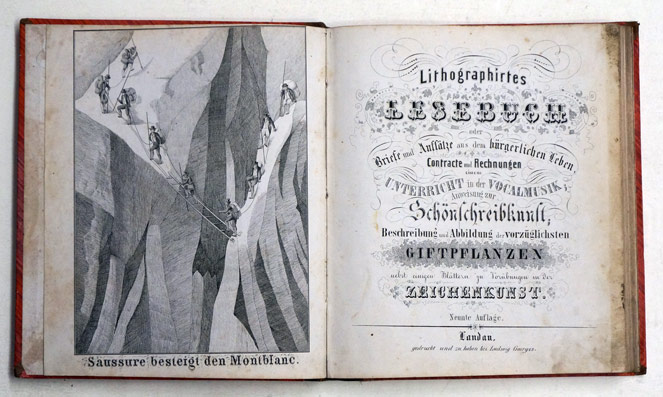 Saussure besteigt den Montblanc.
Lithographirtes
LESEBUCH
oder
Briefe und Aufsätze aus dem bürgerlichen Leben,
Contracte und Rechnungen
UNTERRICHT in der VOCALMUSIK;
Anweisung zur
Schönschreibkunst;
Beschreibung und Abbildung der vorzüglichsten
GIFTPFLANZEN
nebst einigen Blättern zu Vorübungen in der
ZEICHENKUNST.
Neunte Auflage.
Landau,
gedruckt und zu haben bei Ludwig